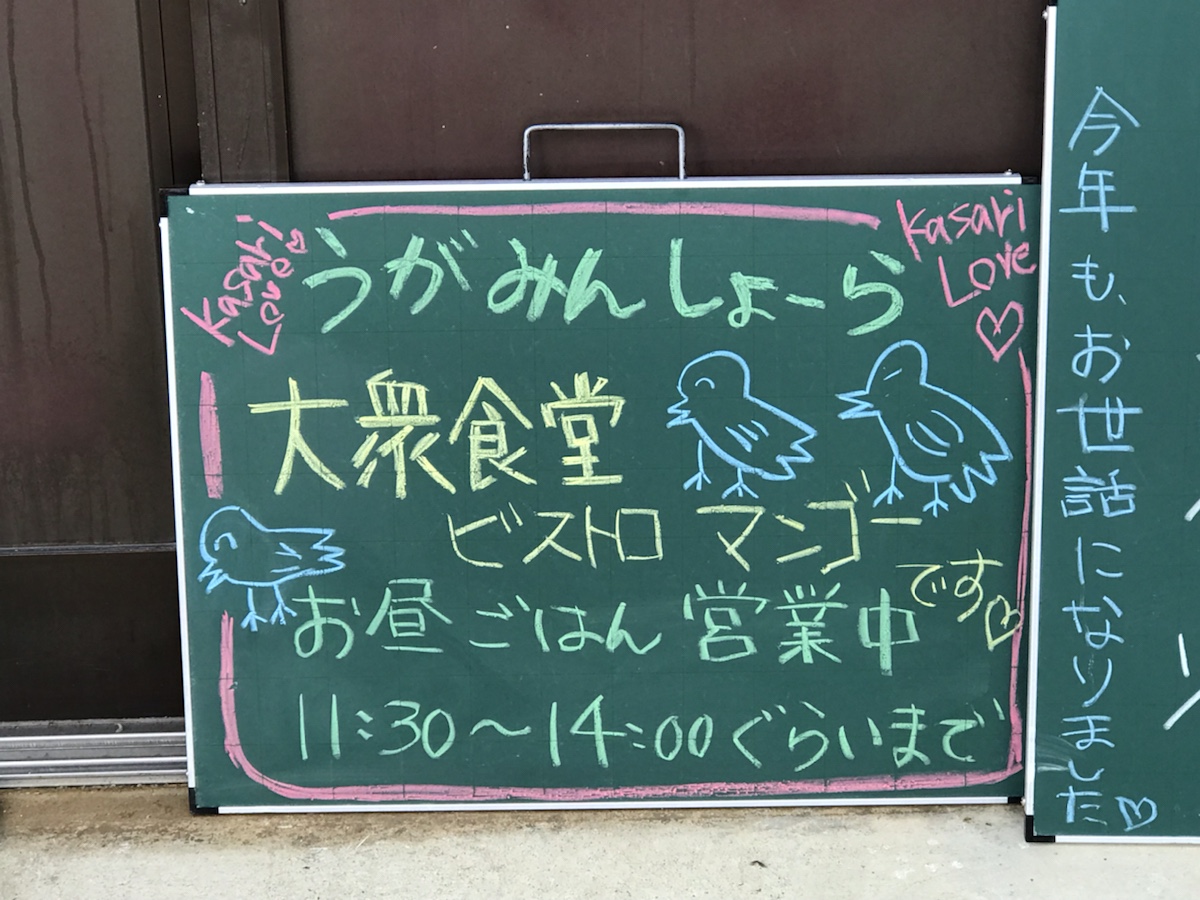 Kasari
Love
うがみんしょーら
Kasari
Love
大衆食堂
ビストロ マンゴー
です
お昼ごはん 営業中
11:30～14:00ぐらいまで
今年も、お世話になりました